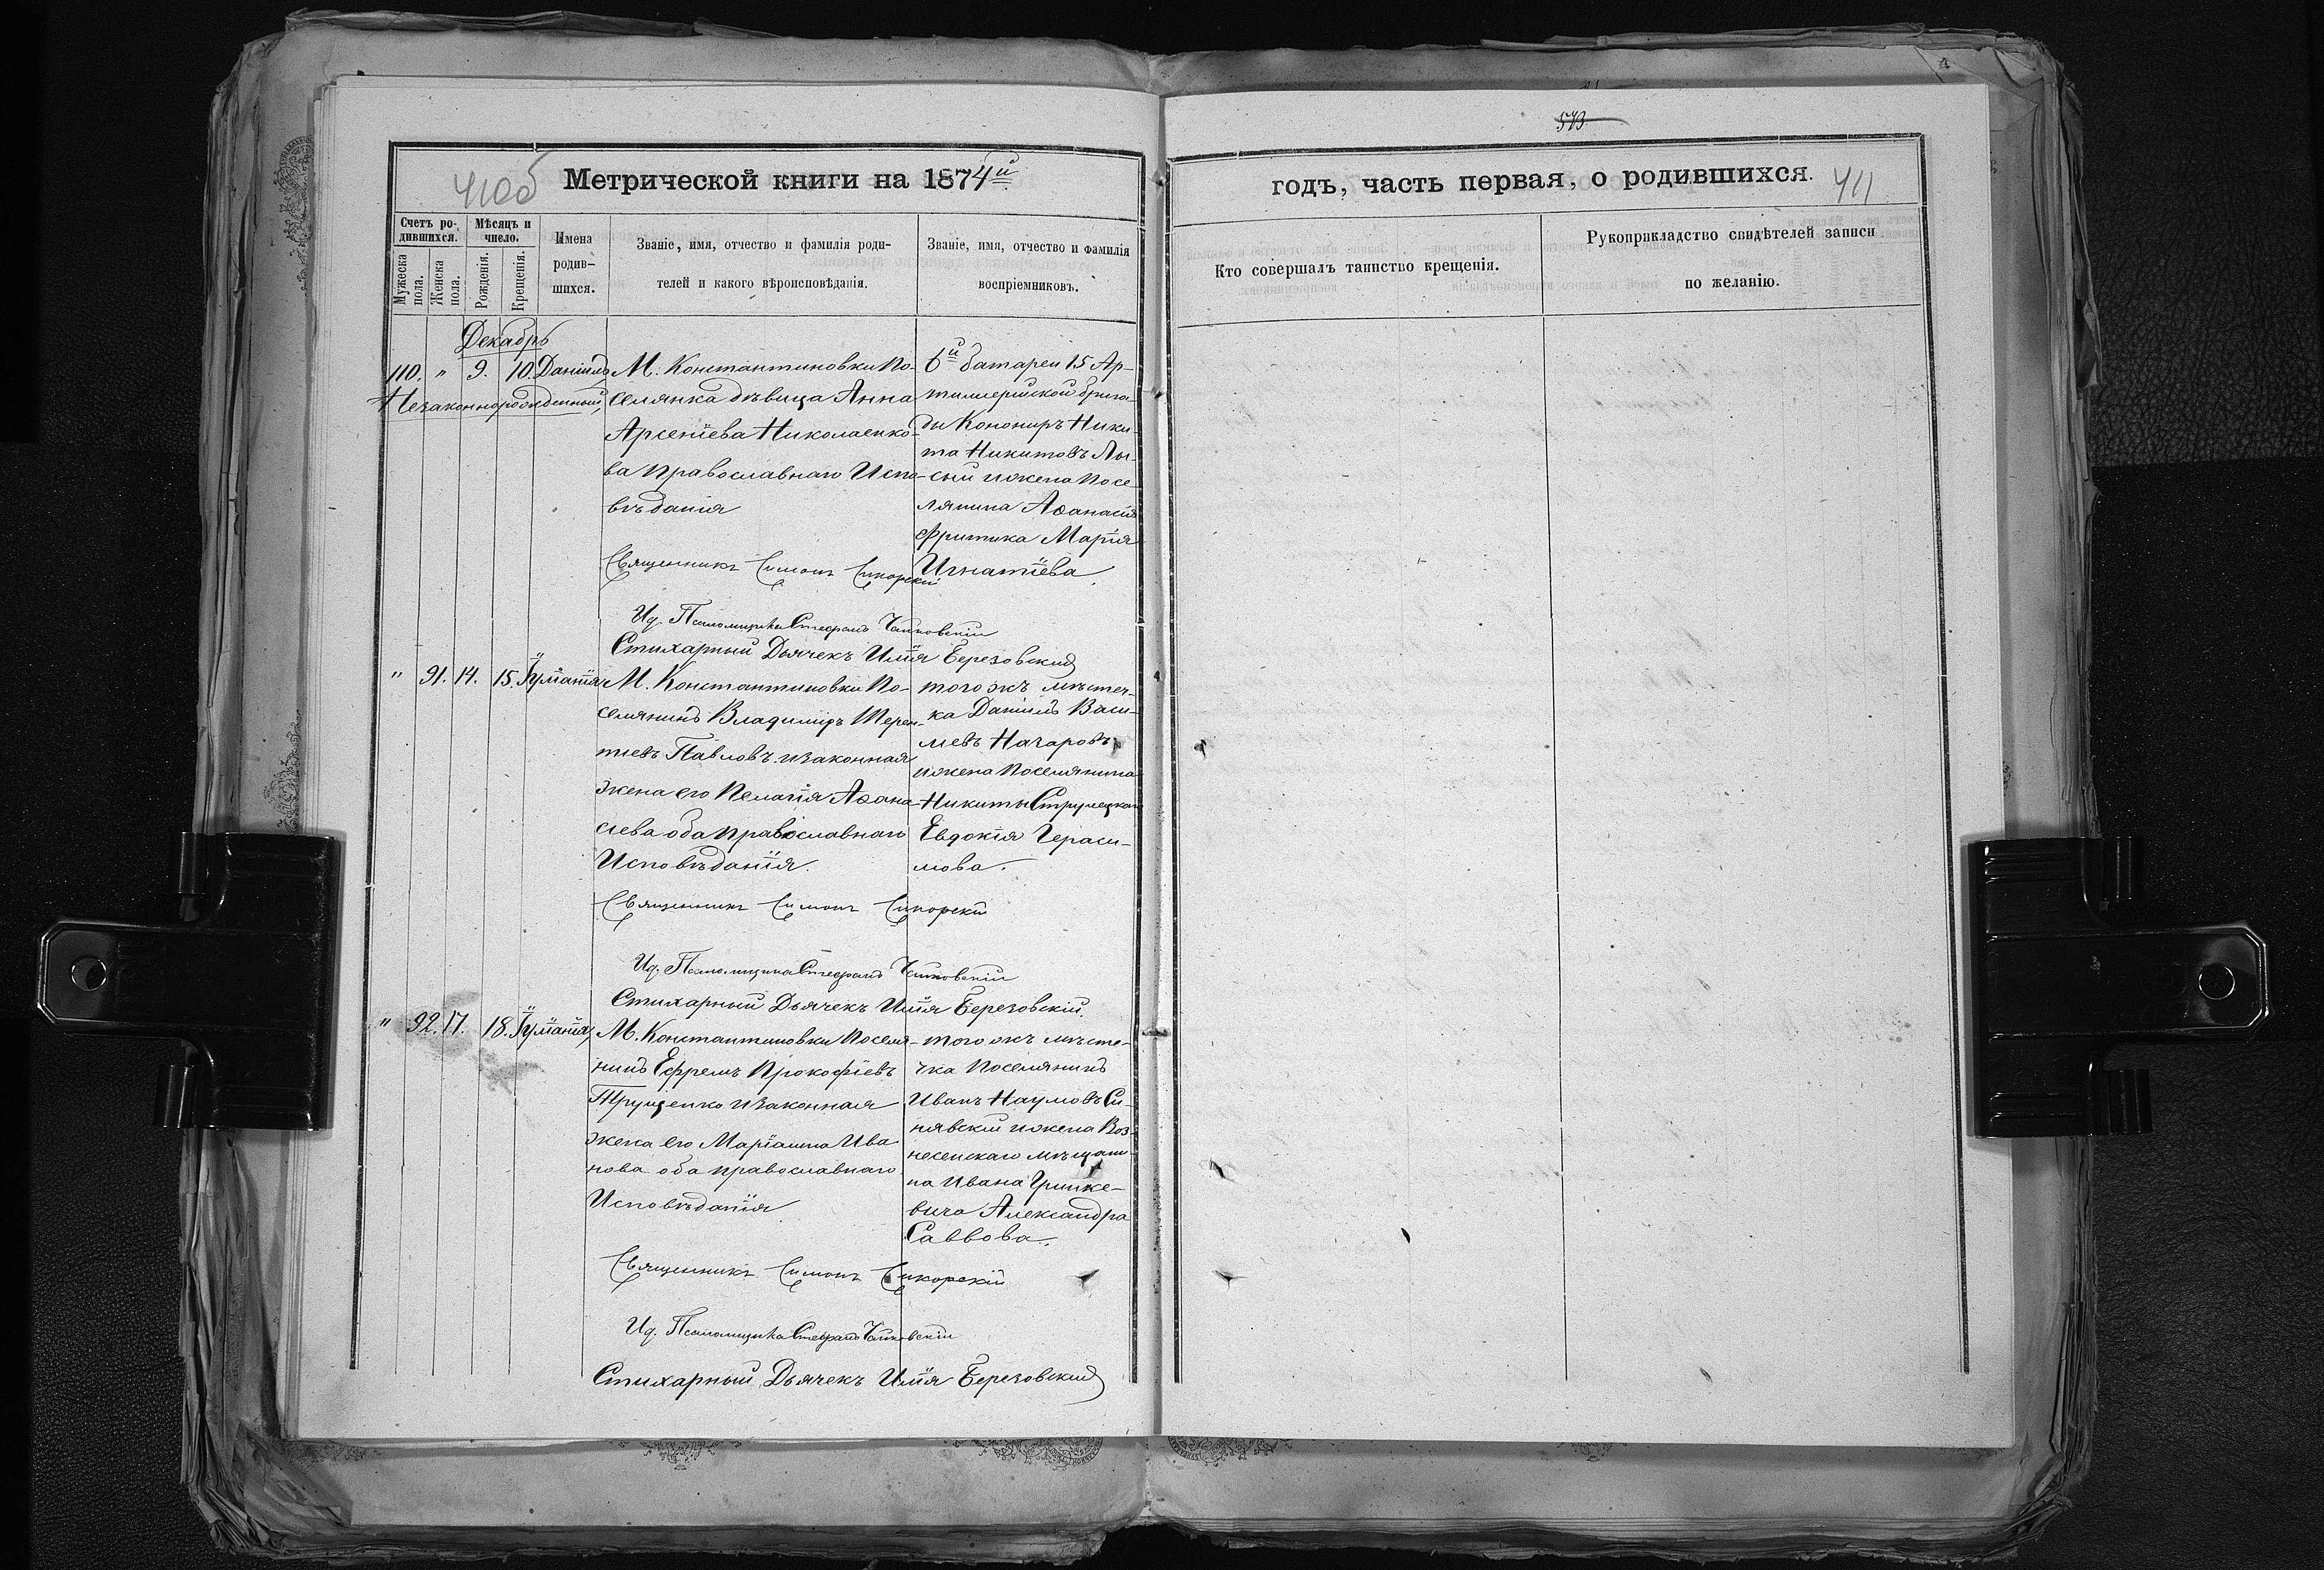 573
410об
Метрической книги на 1874й
Счетъ ро-
дившихся.
Мужеска
пола.
Женска
пола.
Мѣсяцъ и
число.
Рожденія.
Крещенія.
Имена
родив-
шихся.
Званіе, имя, отчество и фамилія роди-
телей и какого вѣроисповѣданія.
Званіе, имя, отчество и фамилія
воспріемниковъ.
Декабрь
110. " 9. 10. Даніилъ,
Незаконнорожденный,
М. Константиновки По-
селянка дѣвица Анна
Арсеніева Николаенко-
ва Православнаго Испо-
вѣданія
6й батареи 15 Ар-
тиллерійской брига-
ды Конониръ Ники-
та Никитовъ Лы-
сый и жена Посе
лянина Аѳанасія
Фритика Марія
Игнатіева.
Священникъ Симонъ Сикорскій
Ид. Псаломщика Стефанъ Чайковскій
Стихарный Дьячекъ Илія Березовскій
" 91. 14. 15. Іуліанія
М. Константиновки По-
селянинъ Владиміръ Терен-
тіевъ Павловъ и законная
жена его Пелагія Аѳана-
сіева оба православнаго
Исповѣданія.
того жъ мѣстеч-
ка Даніилъ Васи-
ліевъ Начаровъ
и жена Поселянина
Никиты
Евдокія Гераси-
мова.
Священникъ Симонъ Сикорскій
Ид. Псаломщика Стефанъ Чайковскій
Стихарный Дьячекъ Илія Березовскій.
" 92. 17. 18. Іуліанія,
М. Константиновки Поселя-
нинъ Ефремъ Прокофіевъ
Трущенко и законная
жена его Маріанна Ива
нова оба православнаго
Исповѣданія
того жъ мѣсте-
чка Поселянинъ
Иванъ Наумовъ Си-
нявскій и жена Воз-
несенскаго мѣщани-
на Ивана Гринке-
вича Александра
Саввова.
Священникъ Симонъ Сикорскій
Ид. Псаломщика Стефанъ Чайковскій
Стихарный Дьячекъ Илія Березовскій
годъ, часть первая, о родившихся.
411
Кто совершалъ таинство крещенія.
Рукоприкладство свидѣтелей записи
по желанію.